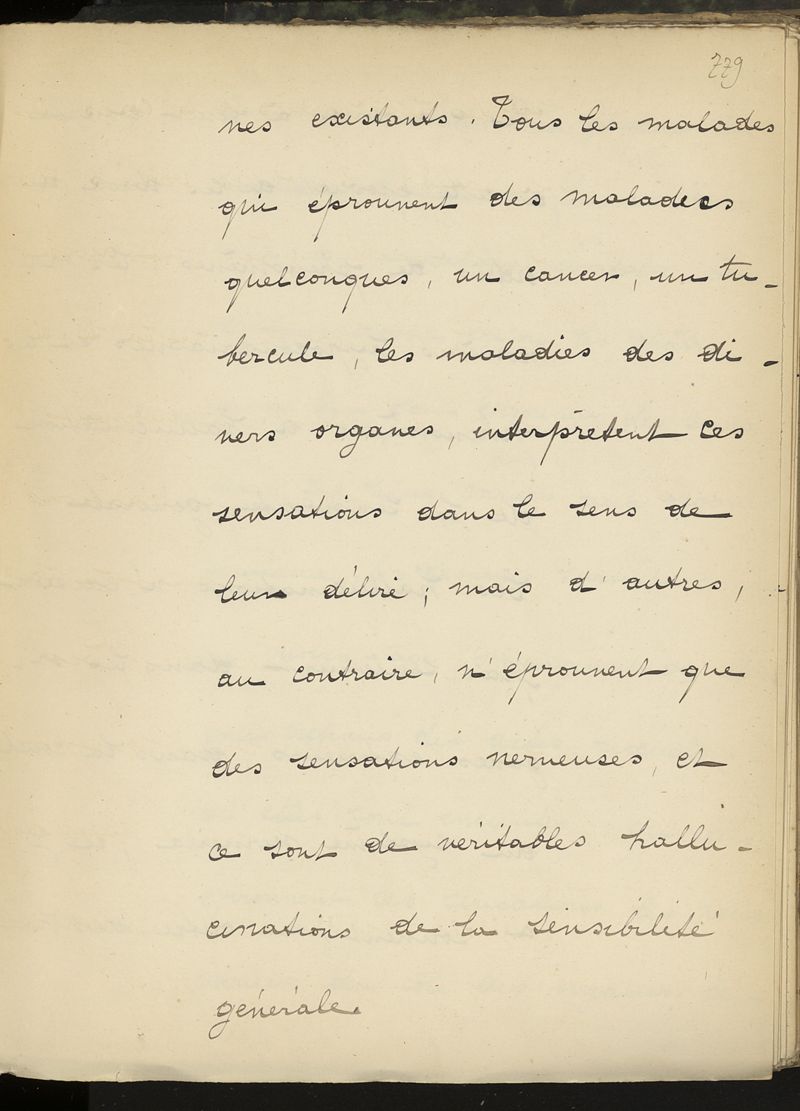 779
nes existants. Tous les malades
qui éprouvent des maladies
quelconques, un cancer, un tu-
bercule, les maladies des di-
vers organes, interprètent ces
sensations dans le sens de
leur délire ; mais d'autres,
au contraire, n'éprouvent que
des sensations nerveuses, et
ce sont de véritables hallu-
cinations de la sensibilité
générale.